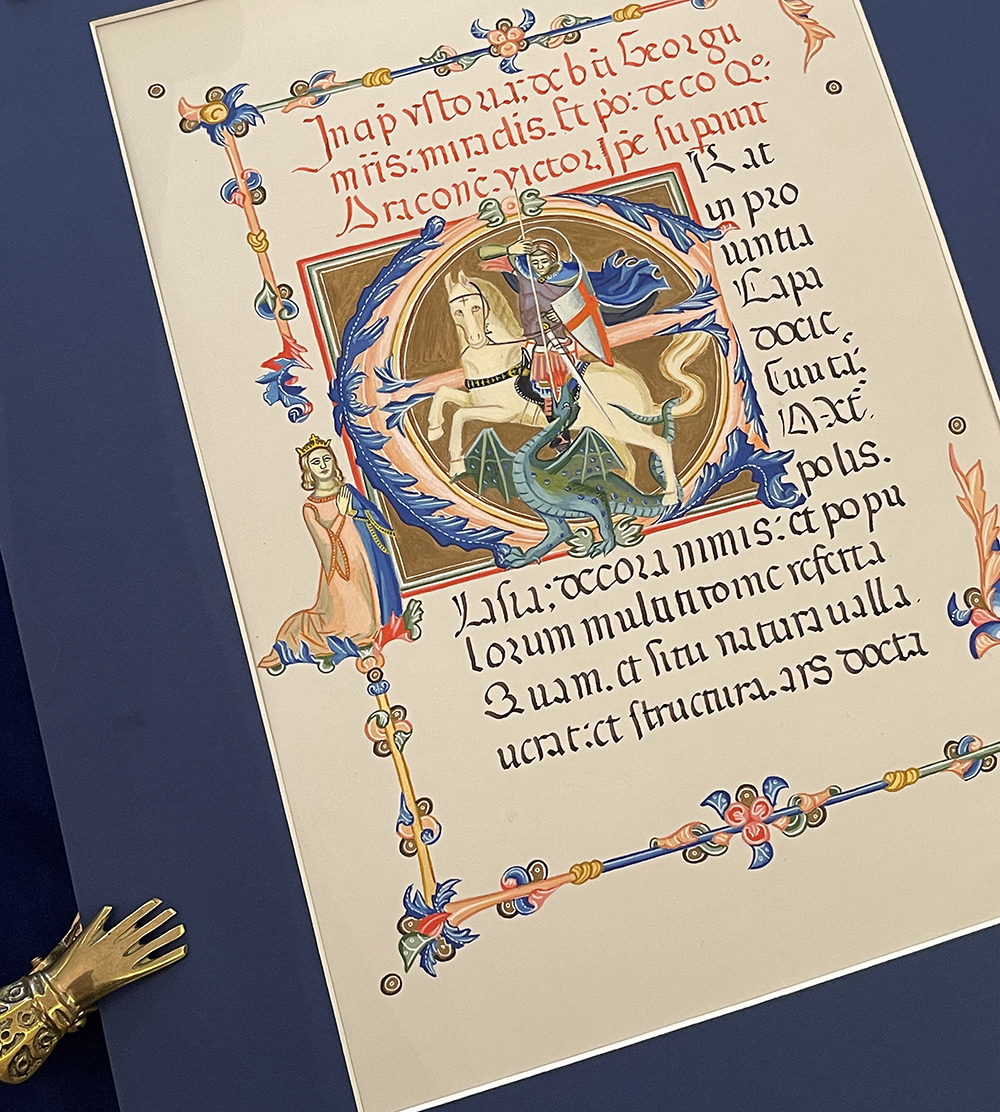 Incip ystoria; de bti Georgii
mris: miraclis. Et po: de eo Qo:
Dracone. victor. Ipe supauit
Rat
in pro
uintia
Capa
docie
Ciuita:
polis.
ylasia; decora nimis: et popu
lorum multitudine referta
Quam. et situ natura ualla.
uerat: et structura. ars docta